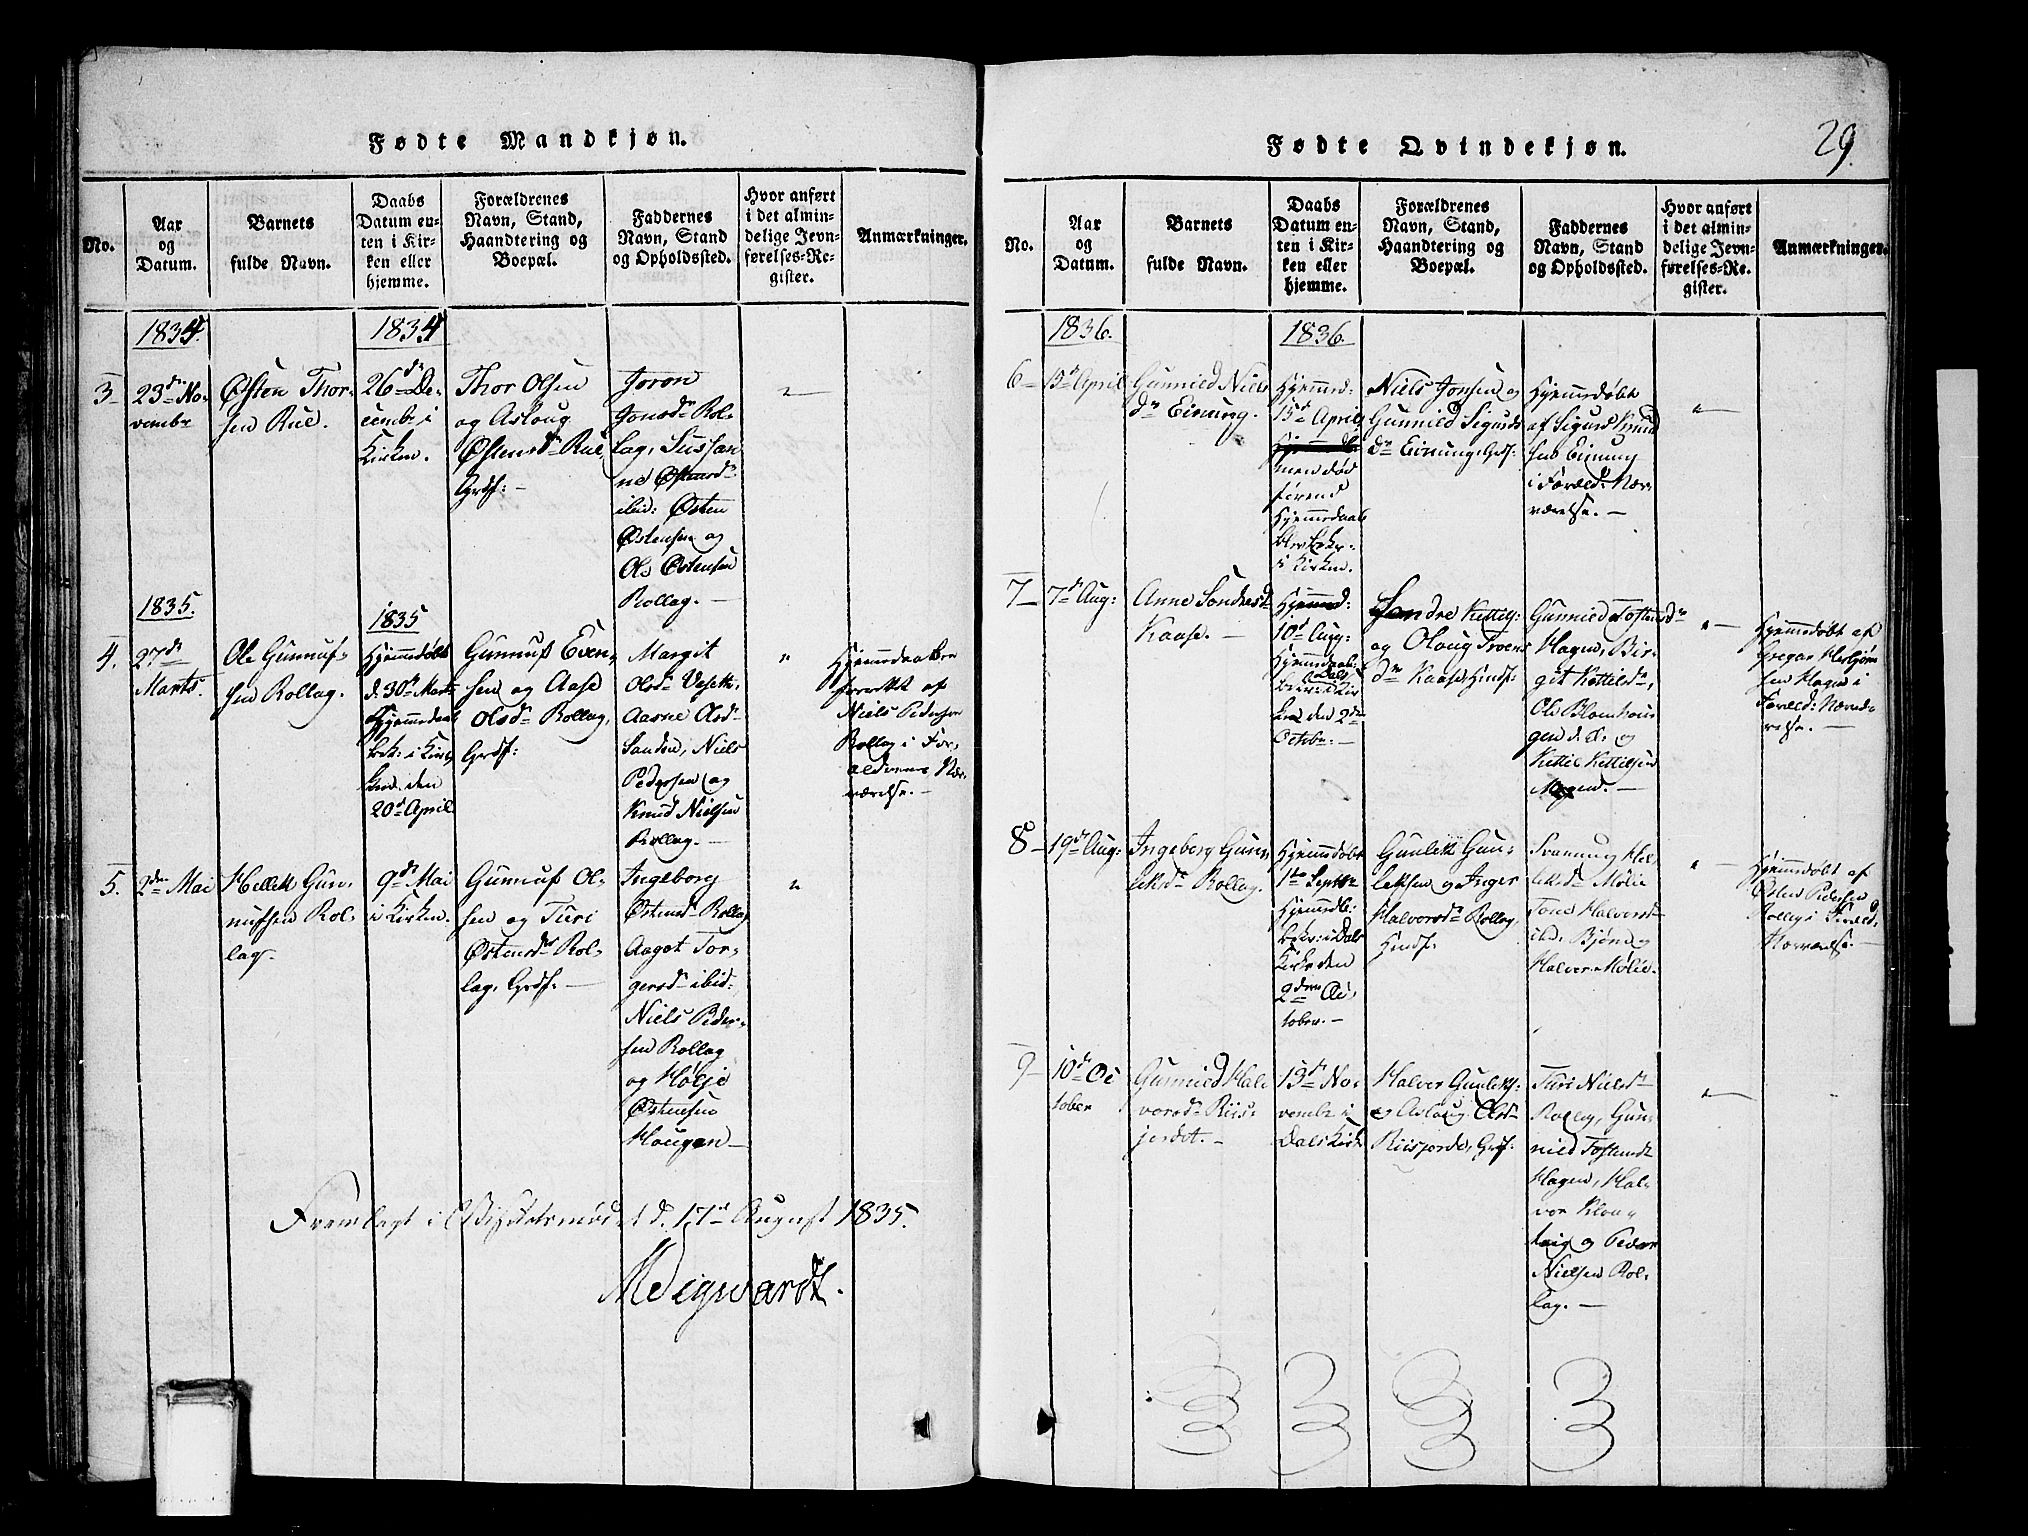 Fødte Mandkjøn.
No.
Aar
og
Datum.
Barnets
fulde Navn.
Daabs
Datum en-
ten i Kir-
ken eller
hjemme.
Forældrenes
Navn, Stand,
Haandtering og
Boepæl.
Faddernes
Navn, Stand
og Opholdssted.
Hvor anført
i det almin-
delige Jevn-
førelses-Re-
gister.
Anmærkninger.
1834.
1834
3
23de No-
vembr
Østen Thor-
sen Rue.
26de De-
cembr i
Kirken.
Thor Olsen
og Aslaug
Østensdr Rue,
Grdf: –
Joron
Jonsdr Rol-
lag, Sussan
ne Østensdr
ibid: Østen
Østensen og
Ole Østensen
Rollag. –
"
1835.
1835
4.
27de
Marts.
Ole Gunnuf-
sen Rollag.
Hjemmedøbt
d. 30te Marts
Hjemmedaab
bek: i Kirk
den
20de April
Gunnuf Even-
sen og Aase
Olsdr Rollag,
Grdf:
Margit
Olsdr
Aasne Olsdr
Sanden, Niels
Pedersen og
Knud Nielsen
Rollag. –
"
Hjemmedaaben
forrettet af
Niels Pedersen
Rollag i For-
ældrenes Nær-
værelse. –
5.
2den Mai
Hellek Gun-
nufsen Rol-
lag.
9de Mai
i Kirken.
Gunnuf Ol-
sen og Turi
Østensdr Rol-
lag, Grdf: –
Ingeborg
Østensdr Rollag
Aagot Tor-
gersdr ibid:
Niels Peder-
sen Rollag
og Hølje
Østensen
Haugen –
"
Fremlagt i Visitatsmødet d. 17de August 1835.
Fødte Qvindekjøn.
29.
No.
Aar
og
Datum.
Barnets
fulde Navn.
Daabs
Datum en-
ten i Kir-
ken eller
hjemme.
Forældrenes
Navn, Stand,
Haandtering og
Boepæl.
Faddernes
Navn, Stand
og Opholdssted.
Hvor anført
i det almin-
delige Jevn-
førelses-Re-
gister.
Anmærkninger.
1836.
1836.
6 –
15de April
Gunnild Niels
dr Einung.
Hjemmed:
15de April
men død
førend
Hjemmedaab
blev bekr:
i Kirken.
Niels Jonsen og
Gunnild Sigurds
dr Einung, Grdf:
Hjemmedøbt
af Sigurd Knud
sen Einung
i Foræld: Nær-
værelse. –
"
7 –
7de Aug:
Anne Sondresdr
Kaase. –
Hjemmed:
10de Aug:
Hjemmedaab:
bekr: i Dals Kir
ke den 2den
Octbr. –
Sondre Kittils:
og Olaug Svens
dr Kaase, Hmdf:
Gunnild Tostensdr
Hagen, Bir-
git Kittilsdr,
Ole Blomhau
gen og
Kittil Kittilsen
Mogen. –
" –
Hjemmedøbt af
Gregar Herbjørn
sen Hagen i
Foræld: Nærvæ-
relse. –
8 –
19de Aug:
Ingeborg Gun-
leksdr Rollag.
Hjemmedøbt
1ste Septbr
Hjemmedb:
bekr: i Dals
Kirke den
2den Oc-
tober. –
Gunlek Gun-
leksen og Inger
Halvorsdr Rollag,
Hmdf:
Svanaug Hel-
leksdr Mølie
Tone Halvorsdr
ibd: Bjørn og
Halvor Mølie.
" –
Hjemmedøbt af
Østen Pedersen
Rollag i Foræld:
Nærværelse. –
9 –
10de Oc
tober
Gunnild Hal-
vorsdr Riis-
jordet. –
13de No-
vembr i
Dals Kirke
Halvor Gunleks:
og Aslaug Olsdr
Riisjordet, Grdf:
Turi Nielsdr
Rollag, Gun-
nild Tostensdr
Hagen, Hal-
vor
og Peder
Nielsen Rol-
lag. –
"